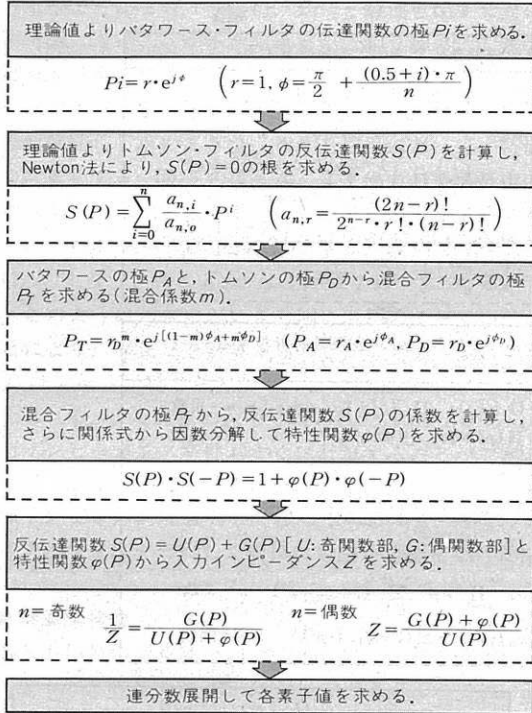 理論値よりバタワース・フィルタの伝達関数の極Piを求める.
Pi=r・e^{jφ} (r=1, φ=π/2+(0.5+i)・π/n)
理論値よりトムソン・フィルタの反伝達関数S(P)を計算し,
Newton法により, S(P)=0の根を求める.
S(P)=Σ_{i=0}^{n} a_{n,i}/a_{n,o}・P^i (a_{n,r}=(2n-r)!/(2^{n-r}・r!・(n-r)!))
バタワースの極P_Aと, トムソンの極P_Dから混合フィルタの極
P_Tを求める(混合係数m).
P_T=r_D^m・e^{j[(1-m)φ_A+mφ_D]} (P_A=r_A・e^{jφ_A}, P_D=r_D・e^{jφ_D})
混合フィルタの極P_Tから, 反伝達関数S(P)の係数を計算し,
さらに関係式から因数分解して特性関数φ(P)を求める.
S(P)・S(-P)=1+φ(P)・φ(-P)
反伝達関数S(P)=U(P)+G(P)[U:奇関数部, G:偶関数部]と
特性関数φ(P)から入力インピーダンスZを求める.
n=奇数 1/Z=G(P)/(U(P)+φ(P)) n=偶数 Z=(G(P)+φ(P))/U(P)
連分数展開して各素子値を求める.